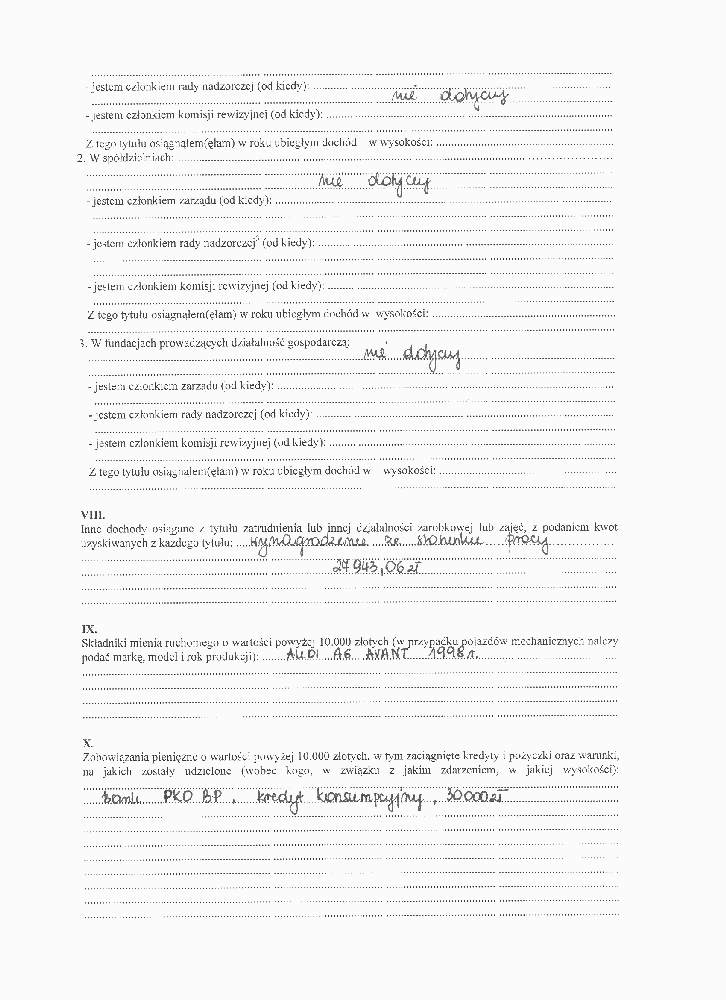 - jestem członkiem rady nadzorczej (od kiedy):
nie dotyczy
- jestem członkiem komisji rewizyjnej (od kiedy):
Z tego tytułu osiągnąłem(ęłam) w roku ubiegłym dochód w wysokości:
2. W spółdzielniach:
nie dotyczy
- jestem członkiem zarządu (od kiedy):
- jestem członkiem rady nadzorczej³ (od kiedy):
- jestem członkiem komisji rewizyjnej (od kiedy):
Z tego tytułu osiągnąłem(ęłam) w roku ubiegłym dochód w wysokości:
3. W fundacjach prowadzących działalność gospodarczą:
nie dotyczy
- jestem członkiem zarządu (od kiedy):
- jestem członkiem rady nadzorczej (od kiedy):
- jestem członkiem komisji rewizyjnej (od kiedy):
Z tego tytułu osiągnąłem(ęłam) w roku ubiegłym dochód w wysokości:
VIII.
Inne dochody osiągane z tytułu zatrudnienia lub innej działalności zarobkowej lub zajęć, z podaniem kwot
uzyskiwanych z każdego tytułu: wynagrodzenie ze stosunku pracy
27 943,06 zł
IX.
Składniki mienia ruchomego o wartości powyżej 10.000 złotych (w przypadku pojazdów mechanicznych należy
podać markę, model i rok produkcji): AUDI A6 AVANT 1998 r.
X.
Zobowiązania pieniężne o wartości powyżej 10.000 złotych, w tym zaciągnięte kredyty i pożyczki oraz warunki,
na jakich zostały udzielone (wobec kogo, w związku z jakim zdarzeniem, w jakiej wysokości):
bank PKO BP, kredyt konsumpcyjny, 30 000 zł